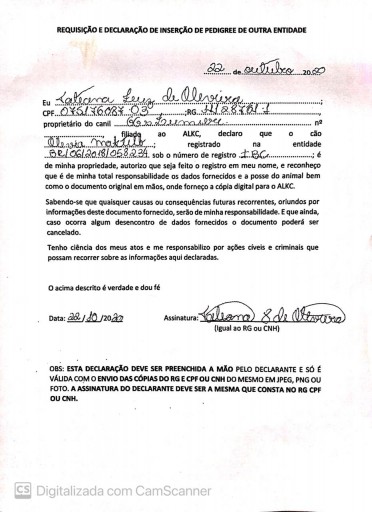 REQUISIÇÃO E DECLARAÇÃO DE INSERÇÃO DE PEDIGREE DE OUTRA ENTIDADE
22 de outubro 2020
Eu de Oliveira
CPF RG
proprietário do canil nº
, filiado ao ALKC, declaro que o cão
registrado na entidade
sob o número de registro IBC ; é
de minha propriedade, autorizo que seja feito o registro em meu nome, e reconheço
que é de minha total responsabilidade os dados fornecidos e a posse do animal bem
como o documento original em mãos, onde forneço a cópia digital para o ALKC.
Sabendo-se que quaisquer causas ou consequências futuras recorrentes, oriundos por
informações deste documento fornecido, serão de minha responsabilidade. E que ainda,
caso ocorra algum desencontro de dados fornecidos o documento poderá ser
cancelado.
Tenho ciência dos meus atos e me responsabilizo por ações cíveis e criminais que
possam recorrer sobre as informações aqui declaradas.
O acima descrito é verdade e dou fé
Data: 22/10/2020 Assinatura: de Oliveira
(Igual ao RG ou CNH)
OBS: ESTA DECLARAÇÃO DEVE SER PREENCHIDA A MÃO PELO DECLARANTE E SÓ É
VÁLIDA COM O ENVIO DAS CÓPIAS DO RG E CPF OU CNH DO MESMO EM JPEG, PNG OU
FOTO. A ASSINATURA DO DECLARANTE DEVE SER A MESMA QUE CONSTA NO RG CPF
OU CNH.
CS Digitalizada com CamScanner